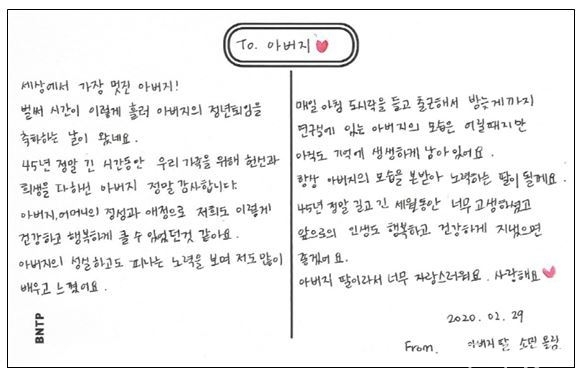 To. 아버지
세상에서 가장 멋진 아버지!
벌써 시간이 이렇게 흘러 아버지의 정년퇴임을
축하하는 날이 왔네요.
45년 정말 긴 시간동안 우리 가족을 위해 헌신과
희생을 다하신 아버지 정말 감사합니다.
아버지, 어머니의 정성과 애정으로 저희도 이렇게
건강하고 행복하게 클 수 있었던것 같아요.
아버지의 성실하고도 피나는 노력을 보며 저도 많이
배우고 느꼈어요.
BNTP
매일 아침 도시락을 들고 출근해서 밤늦게까지
연구실에 있는 아버지의 모습은 어릴때지만
아직도 기억에 생생하게 남아있어요.
항상 아버지의 모습을 본받아 노력하는 딸이 될게요.
45년 정말 길고 긴 세월동안 너무 고생하셨고
앞으로의 인생도 행복하고 건강하게 지냈으면
좋겠어요.
아버지 딸이라서 너무 자랑스러워요. 사랑해요
2020. 02. 29
From. 아버지 딸 소민 올림